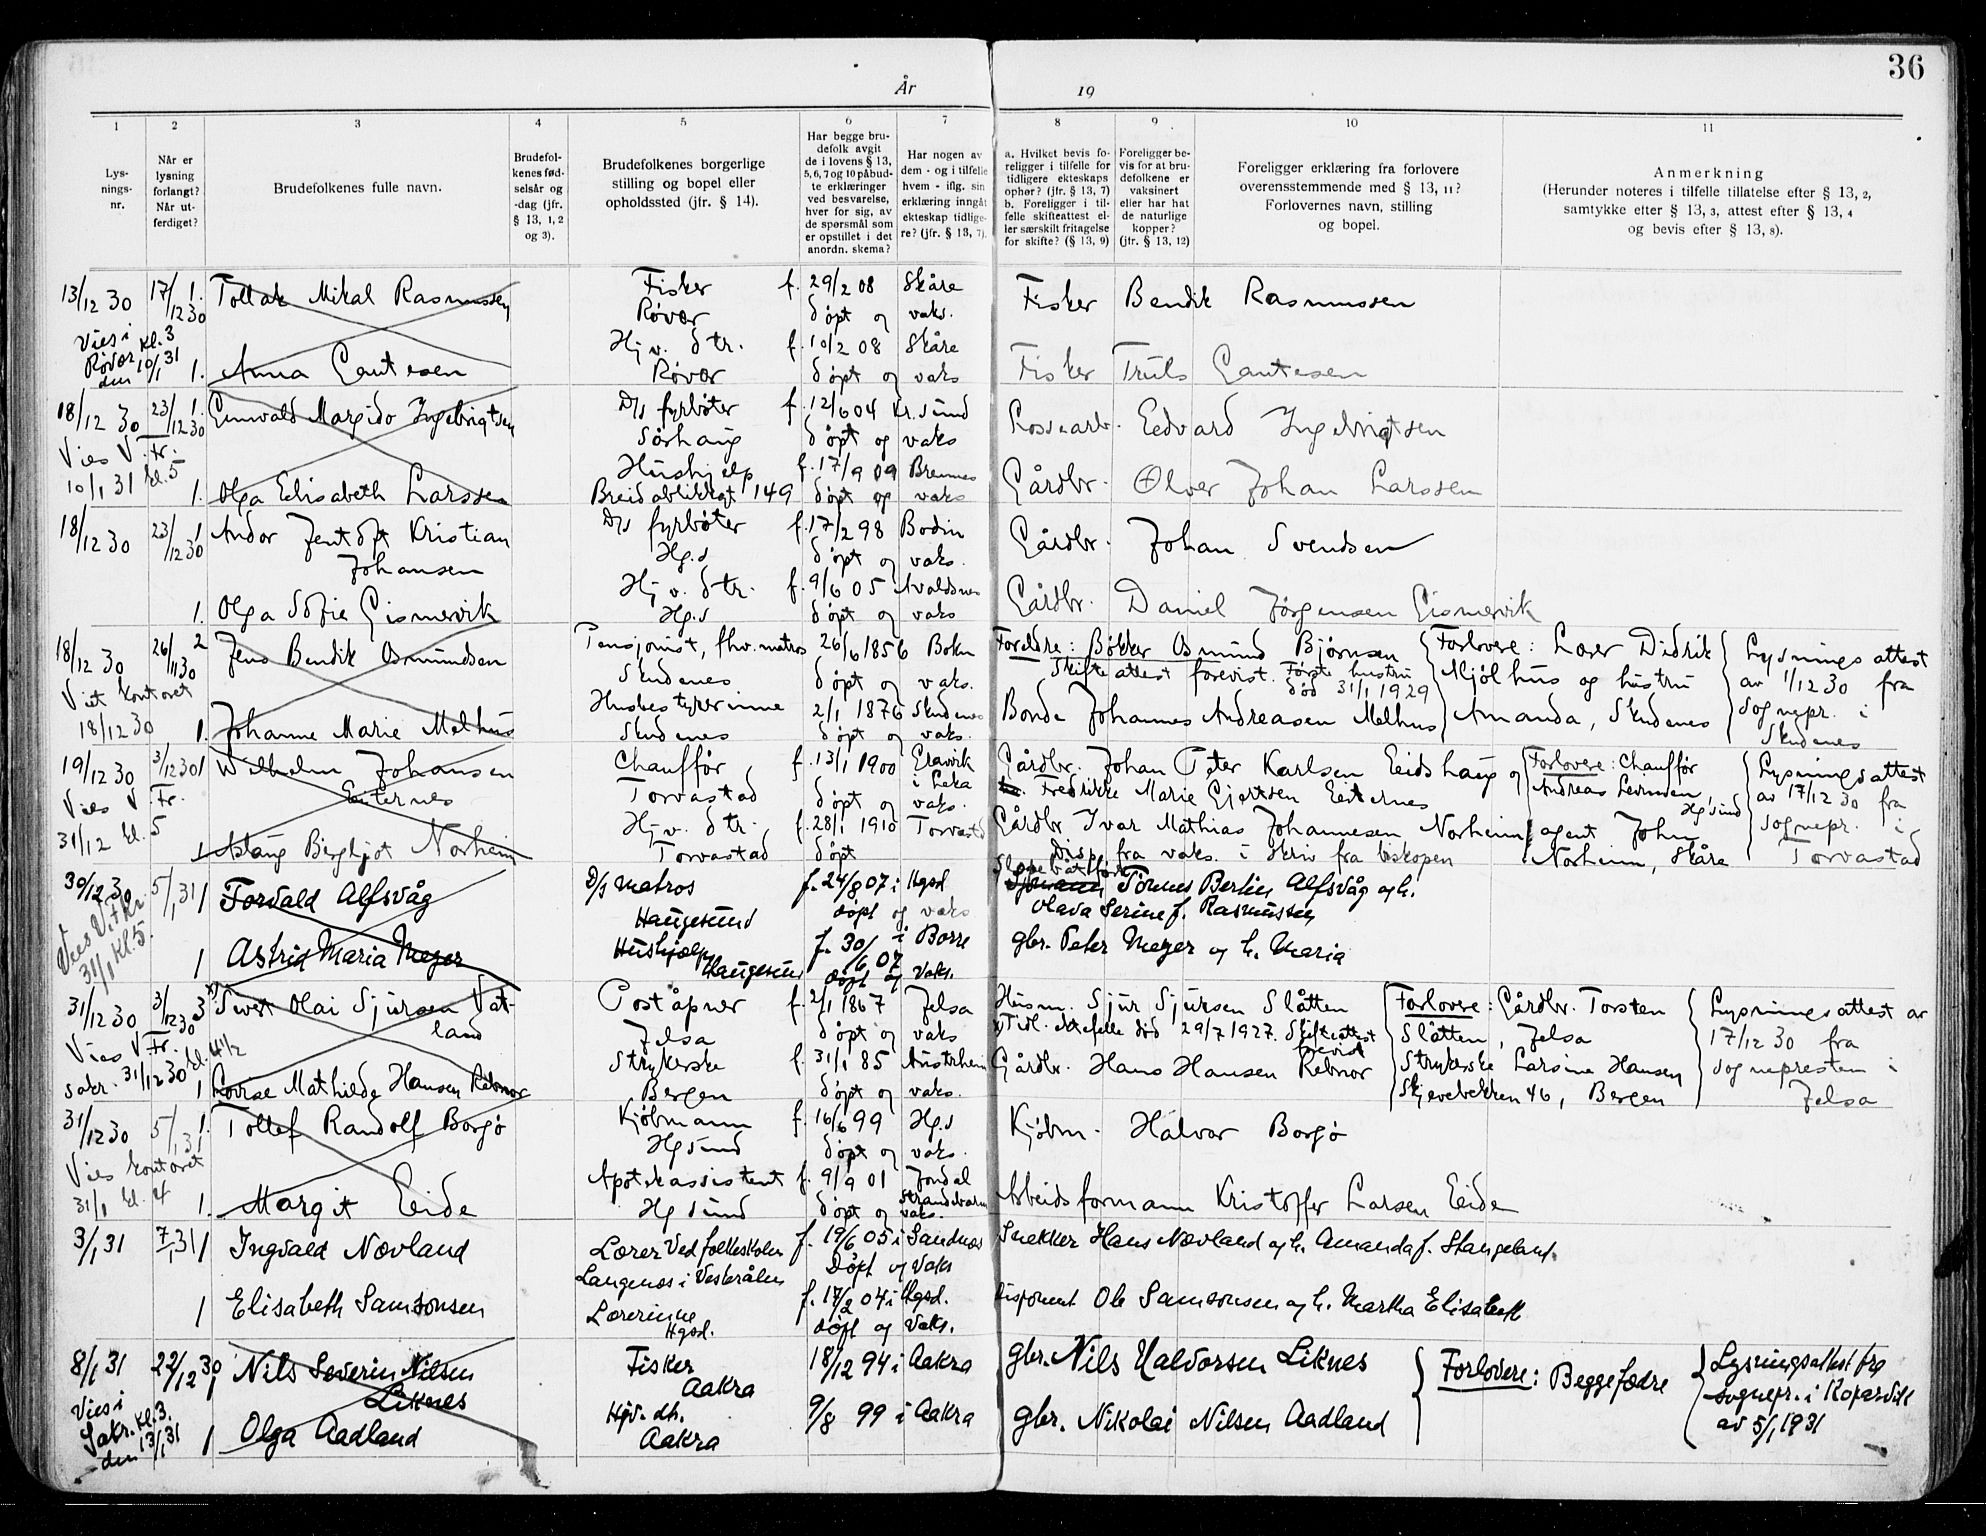 36
År 19
1
Lys-
nings-
nr.
2
Når er
lysning
forlangt?
Når ut-
ferdiget?
3
Brudefolkenes fulle navn.
4
Brudefol-
kenes fød-
selsår og
-dag (jfr.
§ 13, 1, 2
og 3).
5
Brudefolkenes borgerlige
stilling og bopel eller
opholdssted (jfr. § 14).
6
Har begge bru-
defolk avgit
de i lovens § 13,
5, 6, 7 og 10 påbud-
te erklæringer
ved besvarelse,
hver for sig, av
de spørsmål som
er opstillet i det
anordn. skema?
7
Har nogen av
dem - og i tilfelle
hvem - iflg. sin
erklæring inngåt
ekteskap tidlige-
re? (jfr. § 13, 7).
8
a. Hvilket bevis fo-
religger i tilfelle for
tidligere ekteskaps
ophør? (jfr. § 13, 7)
b. Foreligger i til-
felle skifteattest el-
ler særskilt fritagelse
for skifte? (§ 13, 9)
9
Foreligger be-
vis for at bru-
defolkene er
vaksinert
eller har hat
de naturlige
kopper?
(jfr. § 13, 12)
10
Foreligger erklæring fra forlovere
overensstemmende med § 13, 11?
Forlovernes navn, stilling
og bopel.
11
Anmerkning
(Herunder noteres i tilfelle tillatelse efter § 13, 2,
samtykke efter § 13, 3, attest efter § 13, 4
og bevis efter § 13, 8).
13/12 30 17/12 30 1. Tollak Mikal Rasmussen Fisker f. 29/2 08 Skåre Fisker Bendik Rasmussen
Røvær døpt og vaks.
Vies i Røvær kl. 3 den 10/1 31
1. Anna Gautesen Hj v. dtr. f. 10/2 08 Skåre Fisker Truls Gautesen
Røvær døpt og vaks
18/12 30 23/12 30 1. Gunvald Margido Ingebrigtsen D/s fyrbøter f. 12/6 04 Kr. sund Edvard Ingebrigtsen
Sørhaug døpt og vaks
Vies V. Fr. 10/1 31 kl. 5
1. Olga Elisabeth Larssen Hushjelp f. 17/9 09 Bremnes Gårdbr. Ølver Johan Larssen
Breidablikkgt 149 døpt og vaks
18/12 30 23/12 30 1 Andor Jentoft Kristian D/s fyrbøter f. 17/2 98 Bodin Gårdbr. Johan Svendsen
Johansen Hg.s døpt og vaks.
1. Olga Sofie Gismervik Hj v. dtr. f. 9/6 05 Avaldsnes Gårdbr. Daniel Jørgensen Gismervik
Hg.s døpt og vaks
18/12 30 26/11 30 2 Jens Bendik Osmundsen Pensjonist, fhv. matros 26/6 1856 Bokn Foreldre: Bøkker Osmund Bjørnsen Forlovere: Lærer Didrik Lysningsattest
Skudenes døpt og vaks. Skifteattest forevist. Første hustru død 31/1 1929 Mjølhus og hustru av 1/12 30 fra
Viet kontoret 18/12 30
1. Johanne Marie Melhus Husbestyrerinne 2/1 1876 Skudenes Bonde Johannes Andreasen Melhus Amanda, Skudenes sognepr. i
Skudenes døpt og vaks. Skudenes
19/12 30 3/12 30 1 Wilhelm Johansen Chauffør f. 13/1 1900 i Leka Gårdbr. Johan Peter Karlsen Eidshaug og Forlovere: Chauffør Lysningsattest
Eiternes Torvastad døpt og vaks. Fredrikke Marie Gjertsen Eiternes Andreas Hgsund av 17/12 30 fra
Vies V. Fr. 31/12 kl. 5
1 Aslaug Bergljot Norheim Hj v. dtr. f. 28/1 1910 Torvastd Gårdbr Ivar Mathias Johannesen Norheim agent John sognepr. i
Torvastad døpt Disp. fra vaks. i skriv fra biskopen Norheim, Skåre Torvastad
30/12 30 5/1 31 1 Torvald Alfsvåg D/s matros f. 24/8 07 i Hgsd. Tønnes Bertin Alfsvåg og h.
Haugesund døpt og vaks Olava Serine f. Rasmussen
Vies V. Fr. kr. 31/1 kl. 5.
1 Astrid Maria Meyer Hushjælp f. 30/6 07 i Borre gbr. Peter Meyer og h. Maria
Haugesund døpt og vaks.
31/12 30 3/12 30 3 Sivert Olai Sjursen Vat- Poståpner f. 2/1 1867 Jelsa Husm. Sjur Sjursen Slåtten Forlovere: Gårdbr. Torsten Lysningsattest av
land Jelsa døpt og vaks Tidl. ektefelle død 29/7 1927. Skifteattest forevist Slåtten, Jelsa 17/12 30 fra
Vies V. Fr. sakr. 31/12 30 kl. 4 1/2
1 Lovise Mathilde Hansen Rebnor Strykerske f. 31/1 85 Austrheim Gårdbr. Hans Hansen Rebnor Strykerske Larsine Hansen sognepresten i
Bergen døpt og vaks. Skjevebekken 46, Bergen Jelsa
31/12 30 5/1 31 1. Tollef Randolf Borgø Kjøbmann f. 16/6 99 Hg.s Kjøbm. Halvor Borgø
Hgsund døpt og vaks.
Vies kontoret 31/1 kl. 4
1. Margit Eide Apotekassistent f. 9/9 01 Jondal Arbeidsformann Kristoffer Larsen Eide
Hgsund døpt og Strandebarm vaks.
3/1 31 7/1 31 1 Ingvald Nævland Lærer ved folkeskolen f. 19/6 05 i Sandnes Snekker Hans Nævland og h. Amanda f. Stangeland.
Langenes i Vesterålen Døpt og Vaks
1 Elisabeth Samsonsen Lærerinne f. 17/2 04 i Hgsd. Disponent Ole Samsonsen og h. Martha Elisabeth
Hgsd. døpt og Vaks.
8/1 31 22/12 30 1 Nils Severin Nilsen Fisker 18/12 94 i Aakra gbr. Nils Halvorsen Liknes Forlovere: Begge fædre Lysningsattest fra
Liknes Aakra sognepr. i Kopervik
Vies i Sakr. kl. 3. den 13/1 31
1 Olga Aadland Hjv. dtr. 9/8 99 i Aakra gbr. Nikolai Nilsen Aadland av 5/1 1931
Aakra